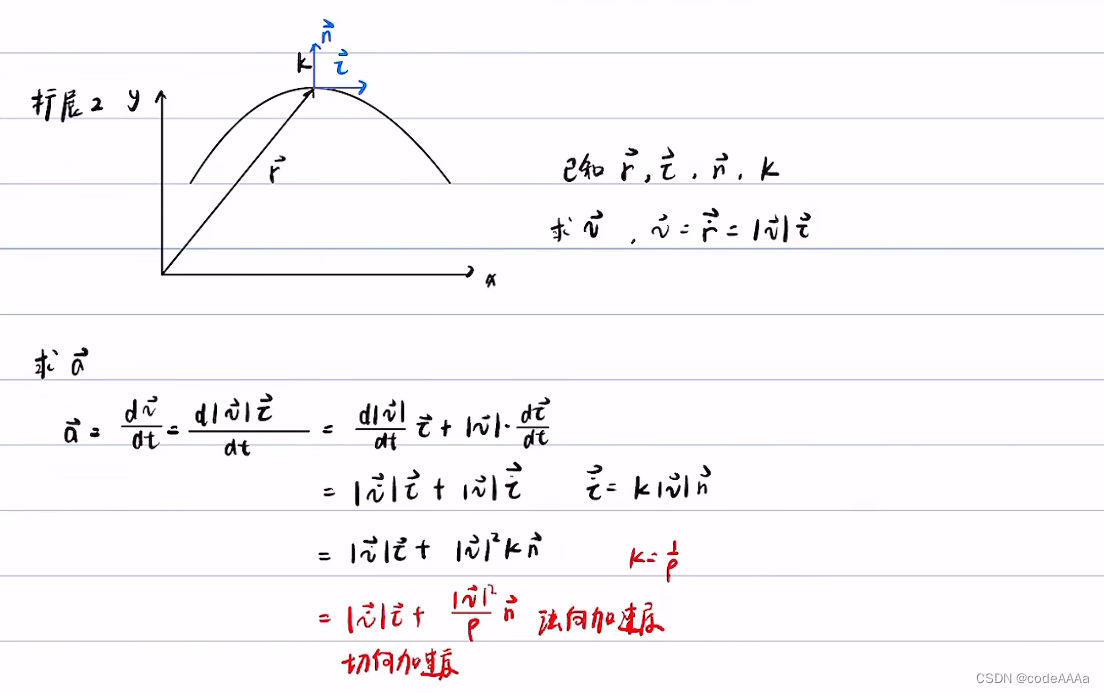 扩展2
y
k
n⃗
τ⃗
r⃗
x
已知 r⃗, τ⃗, n⃗, k
求 v⃗, v⃗ = ṙ⃗ = |v⃗|τ⃗
求 a⃗
a⃗ = dv⃗/dt = d|v⃗|τ⃗/dt = d|v⃗|/dt τ⃗ + |v⃗|·dτ⃗/dt
= |v̇⃗|τ⃗ + |v⃗|τ̇⃗   τ̇⃗ = k|v⃗|n⃗
= |v̇⃗|τ⃗ + |v⃗|²kn⃗   k = 1/ρ
= |v̇⃗|τ⃗ + |v⃗|²/ρ n⃗ 法向加速度
切向加速度
CSDN @codeAAAa